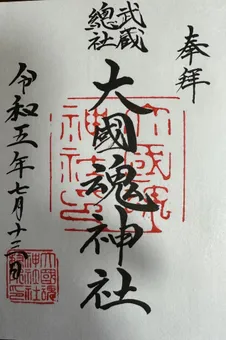 奉拝
武蔵
總社
大國魂神社
令和五年七月十三日
大國魂
神社印